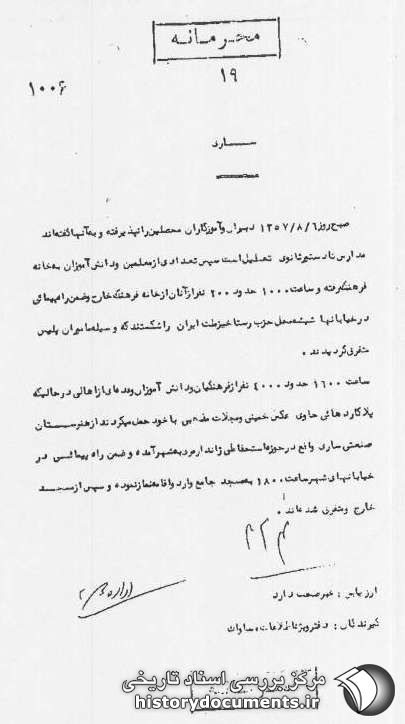 محرمانه
۱۹
۱۰۰۶
ساری
صبح روز ۱۳۵۷/۸/۶ دبیران وآموزگاران محصلین را نپذیرفته و به آنها گفته اند
مدارس تا دستور ثانوی تعطیل است سپس تعدادی از معلمین ودانش آموزان به خانه
فرهنگ رفته و ساعت ۱۰۰۰ حدود ۲۰۰ نفر از آنان از خانه فرهنگ خارج وضمن راه پیمائی
در خیابانها شیشه محل حزب رستاخیز ملت ایران را شکستند که وسیله مامورین پلیس
متفرق گردیدند .
ساعت ۱۶۰۰ حدود ۴۰۰۰ نفر از فرهنگیان ودانش آموزان وعده ای از اهالی در حالیکه
پلاکارد هائی حاوی عکس خمینی ومجلات مذهبی با خود حمل میکردند از هنرستان
صنعتی ساری واقع در حوزه استحفاظی ژاندارمری به شهر آمده و ضمن راه پیمائی در
خیابانهای شهر ساعت ۱۸۰۰ به مسجد جامع وارد واقامه نماز نموده و سپس از مسجد
خارج ومتفرق شده اند .
ارزیابی : خبر صحت دارد
گیرندگان : دفتر ویژه اطلاعات - ساواک
مرکز بررسی اسناد تاریخی
historydocuments.ir